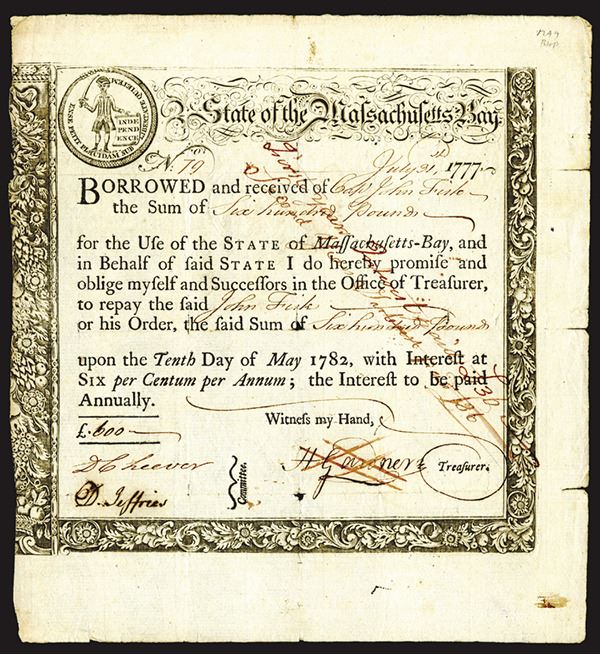 1249
ENSE PETIT PLACIDAM SUB LIBERTATE QUIETEM
INDE
PEND
ENCE
State of the Maſſachuſetts Bay.
No. 79 July 21st 1777
BORROWED and received of Cap John Fisk
the Sum of Six hundred Pounds
for the Uſe of the STATE of Maſſachuſetts-Bay, and
in Behalf of ſaid STATE I do hereby promiſe and
oblige myſelf and Succeſſors in the Office of Treaſurer,
to repay the ſaid John Fisk
or his Order, the ſaid Sum of Six hundred Pounds
upon the Tenth Day of May 1782, with Intereſt at
SIX per Centum per Annum; the Intereſt to be paid
Annually.
Witneſs my Hand,
£.600
D Cheever
D. Jeffries
Committee.
H Gardner
Treaſurer.